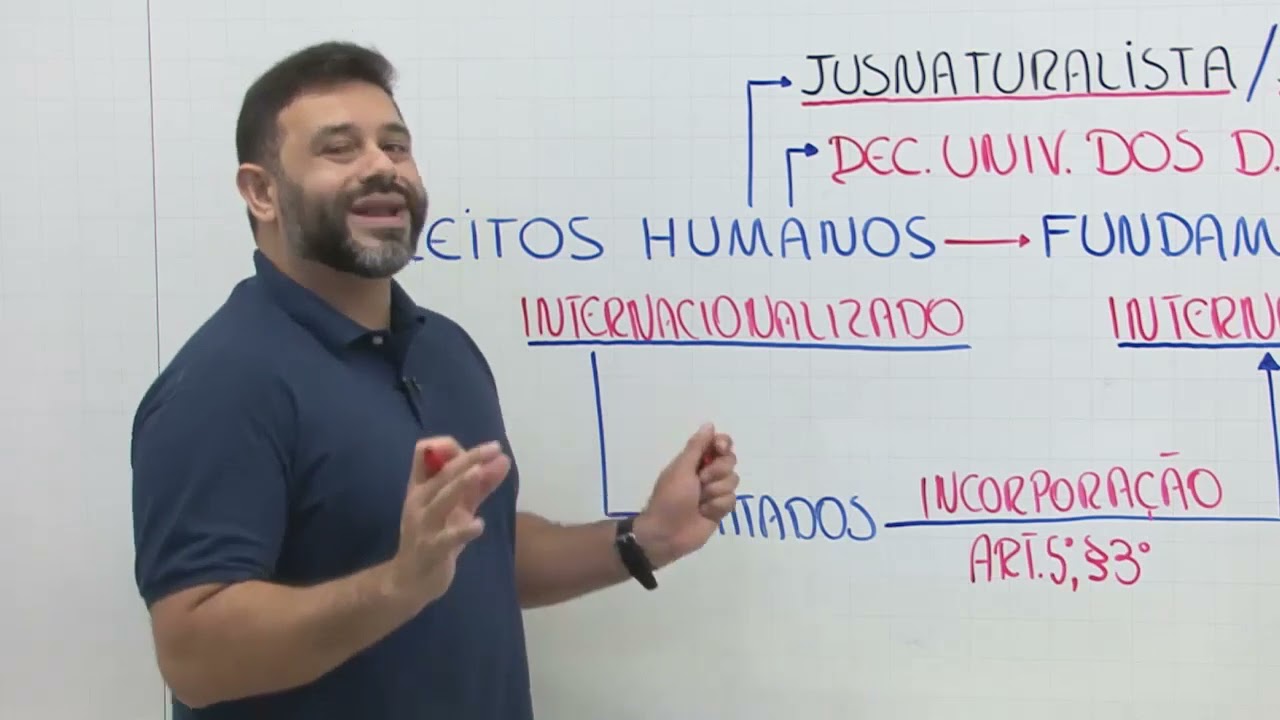 JUSNATURALISTA /
DEC. UNIV. DOS D.
EITOS HUMANOS → FUNDAM
INTERNACIONALIZADO
INTERN
TADOS
INCORPORAÇÃO
ART. 5°, §3°